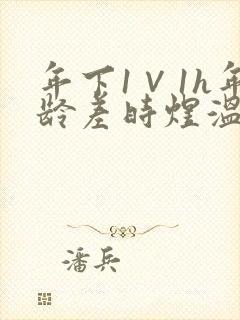 年下1V1h年
龄差时煌温
潘兵